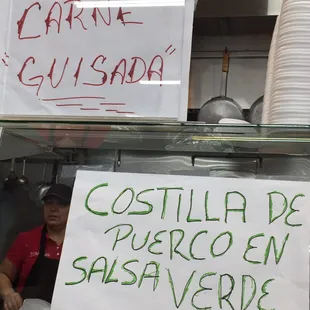 CARNE
"GUISADA"
COSTILLA DE
PUERCO EN
SALSA VERDE